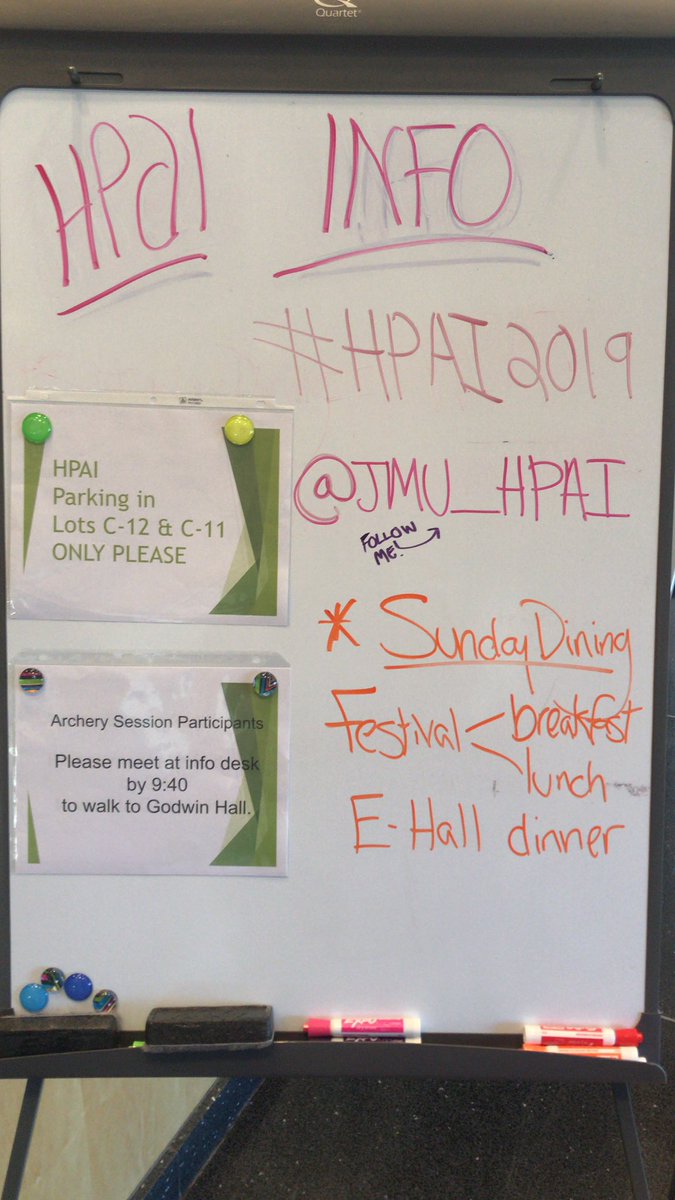 Quartet
HPaI INFO
#HPAI2019
HPAI
Parking in
Lots C-12 & C-11
ONLY PLEASE
@JMU_HPAI
FOLLOW
ME!
* Sunday Dining
Festival breakfast
lunch
E-Hall dinner
Archery Session Participants
Please meet at info desk
by 9:40
to walk to Godwin Hall.
expo